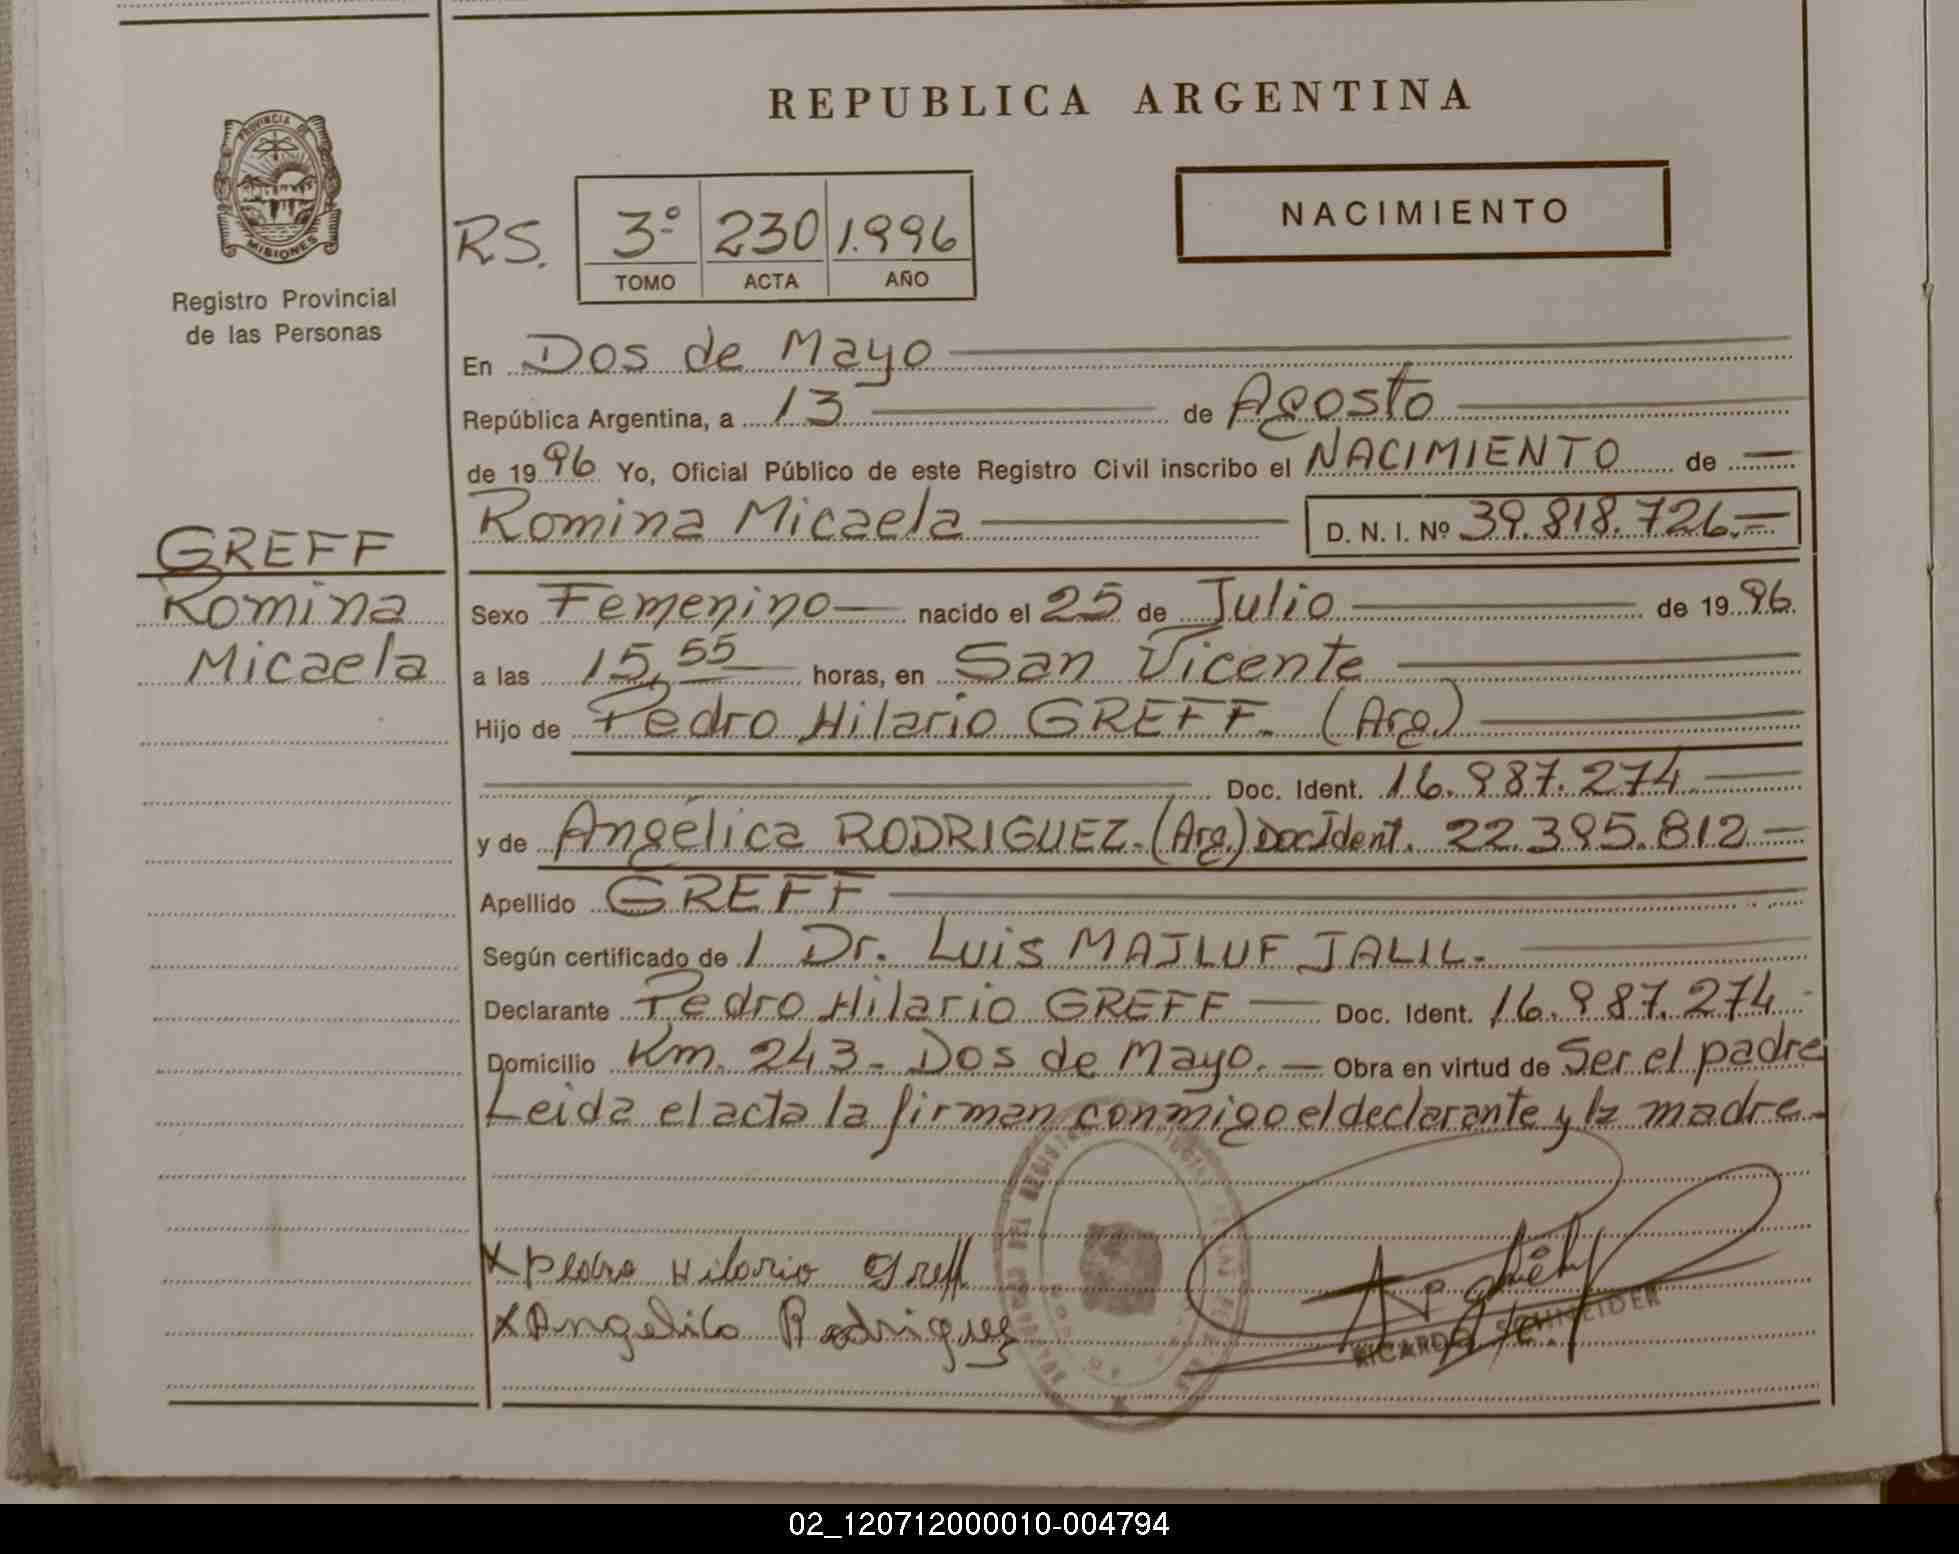 REPUBLICA ARGENTINA
PROVINCIA DE
MISIONES
Registro Provincial
de las Personas
NACIMIENTO
RS. 3º 230 1.996
TOMO ACTA AÑO
En Dos de Mayo
República Argentina, a 13 de Agosto
de 1996 Yo, Oficial Público de este Registro Civil inscribo el NACIMIENTO de —
Romina Micaela D. N. I. Nº 39.818.726.—
GREFF
Romina
Micaela
Sexo Femenino — nacido el 25 de Julio de 1996.
a las 15,55 horas, en San Vicente
Hijo de Pedro Hilario GREFF. (Arg.)
Doc. Ident. 16.987.274
y de Angélica RODRIGUEZ. (Arg.) Doc Ident. 22.395.812 —
Apellido GREFF
Según certificado de 1 Dr. Luis MAJLUF JALIL.
Declarante Pedro Hilario GREFF — Doc. Ident. 16.987.274
Domicilio Km. 243 - Dos de Mayo. — Obra en virtud de Ser el padre
Leida el acta la firman conmigo el declarante y la madre.-
X Pedro Hilario Greff
X Angelica Rodriguez
RICARDO SCHNEIDER
02_120712000010-004794